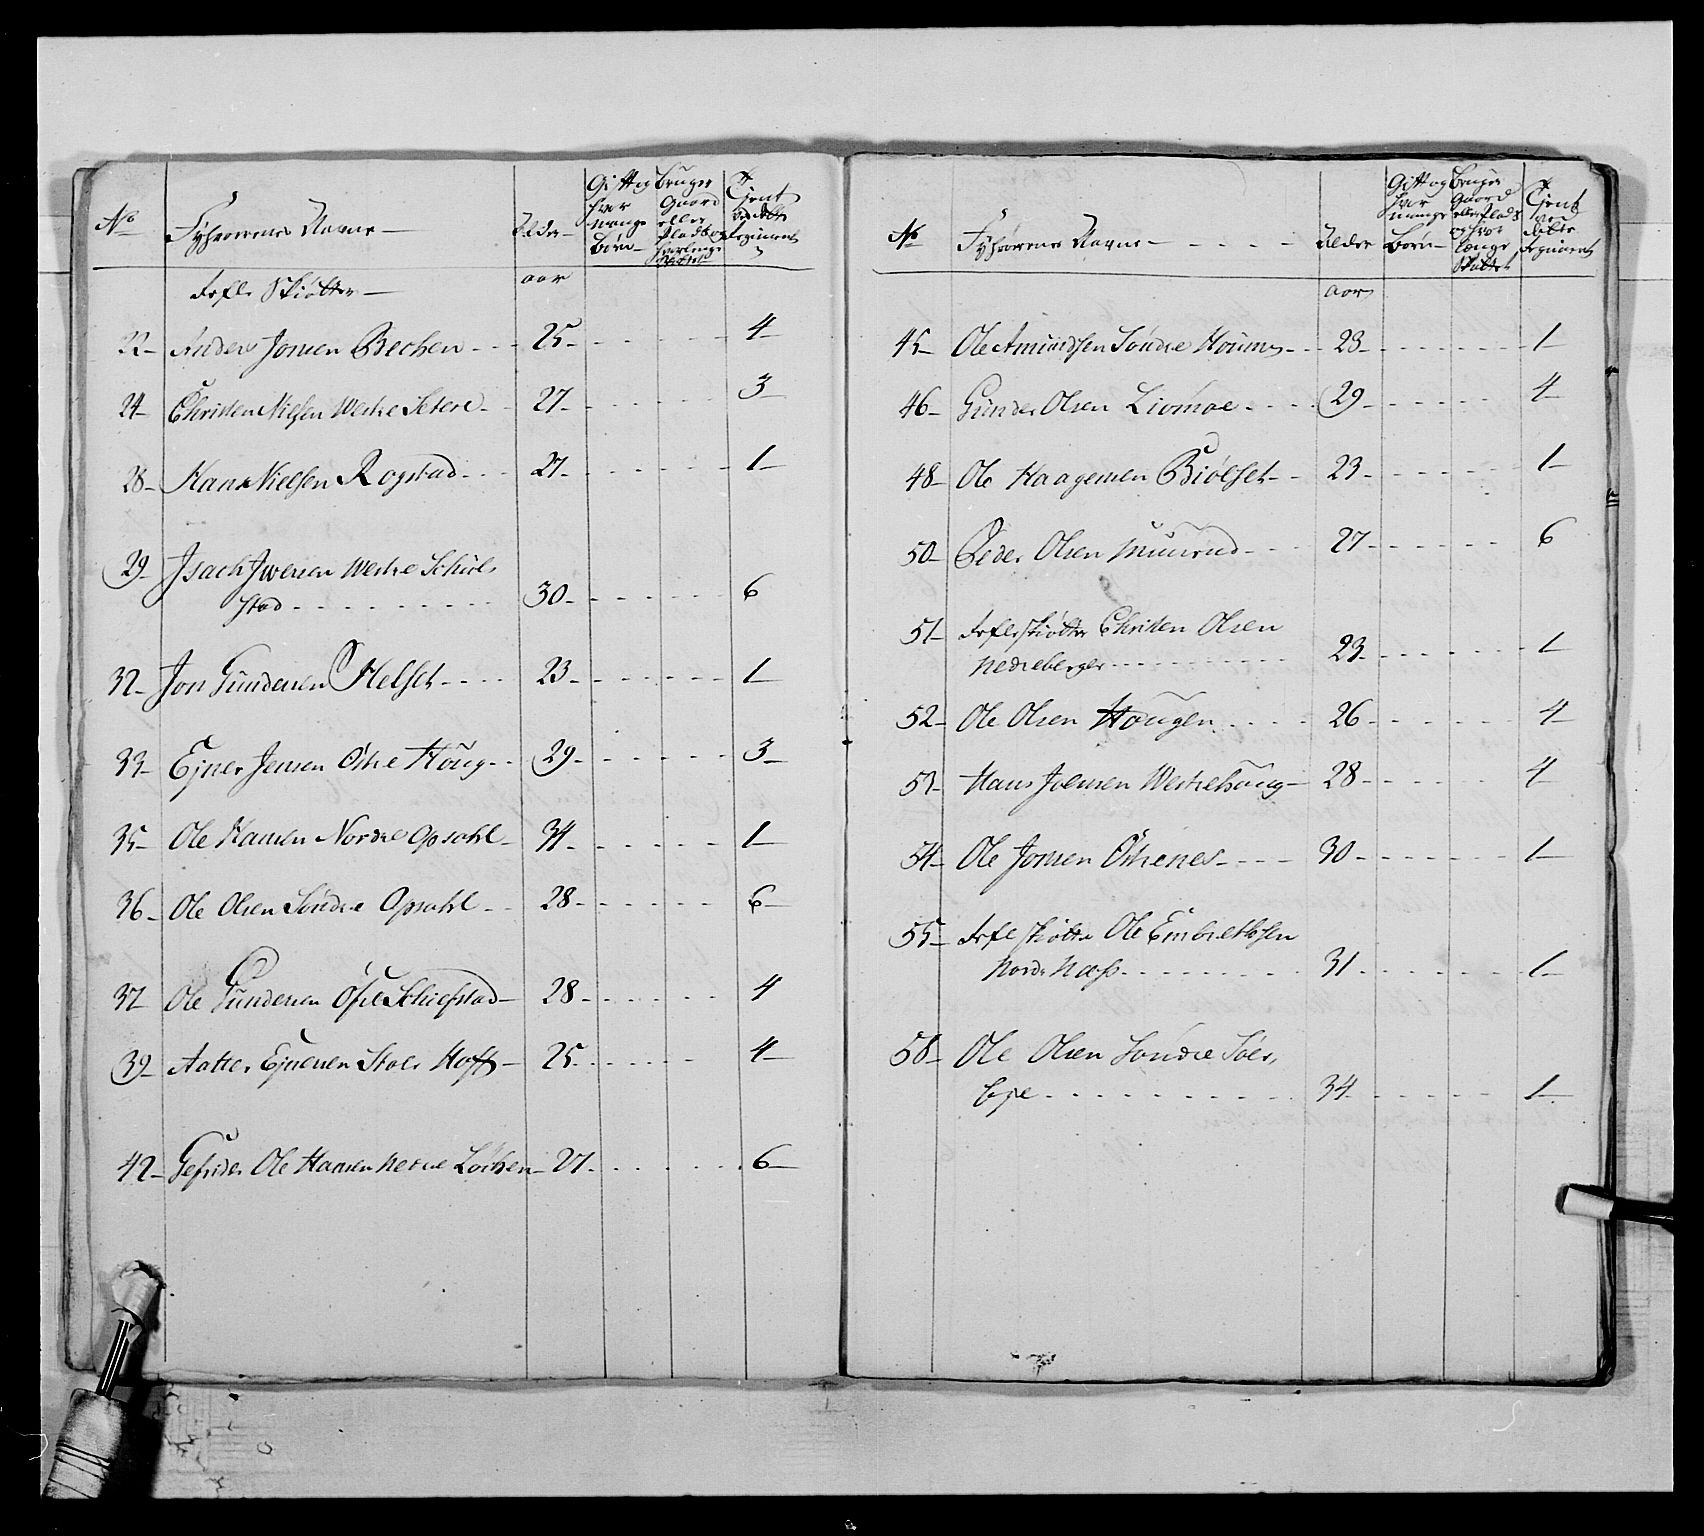 No
Tyhrørenes Navne
Alder
Gift og hvor mange Børn
bruger Gaard eller Plads og hvorlenge
Tjent ved dette Regiment
aar
22 Anders Jonsen Bechen 25 4
24 Christen Nielsen Westre Setere 27 3
28 Hans Nielsen Rogstad 27 1
29 Isach Iwersen Westre Schiel
stad 30 6
32 Jon Gundersen Helset 23 1
33 Ejner Jensen Østre Houg 29 3
35 Ole Hansen Nordre Opsahl 34 1
36 Ole Olsen Søndre Opsahl 28 6
37 Ole Gundersen Øfre Schiefstad 28 4
39 Aatter Ejnersen Stoer Hoff 25 4
42 Gefrider Ole Hansen nedre Løchen 27 6
No
Tyhrørenes Navne
Alder
Gift og hvor mange Børn
bruger Gaard eller Plads og hvor længe
Tjent ved dette Regiment
aar
45 Ole Amundsen Søndre Houm 23 1
46 Gunder Olsen Liømoe 29 4
48 Ole Haagensen Biølset 23 1
50 Peder Olsen Muurud 27 6
51 Christen Olsen
Nedreberger 23 1
52 Ole Olsen Hougen 26 4
53 Hans Joensen Westrehoug 28 4
54 Ole Jonsen Østrenes 30 1
55 Ole Embrethsen
Nordr Næss 31 1
58 Ole Olsen Søndre Søer
bye 34 1